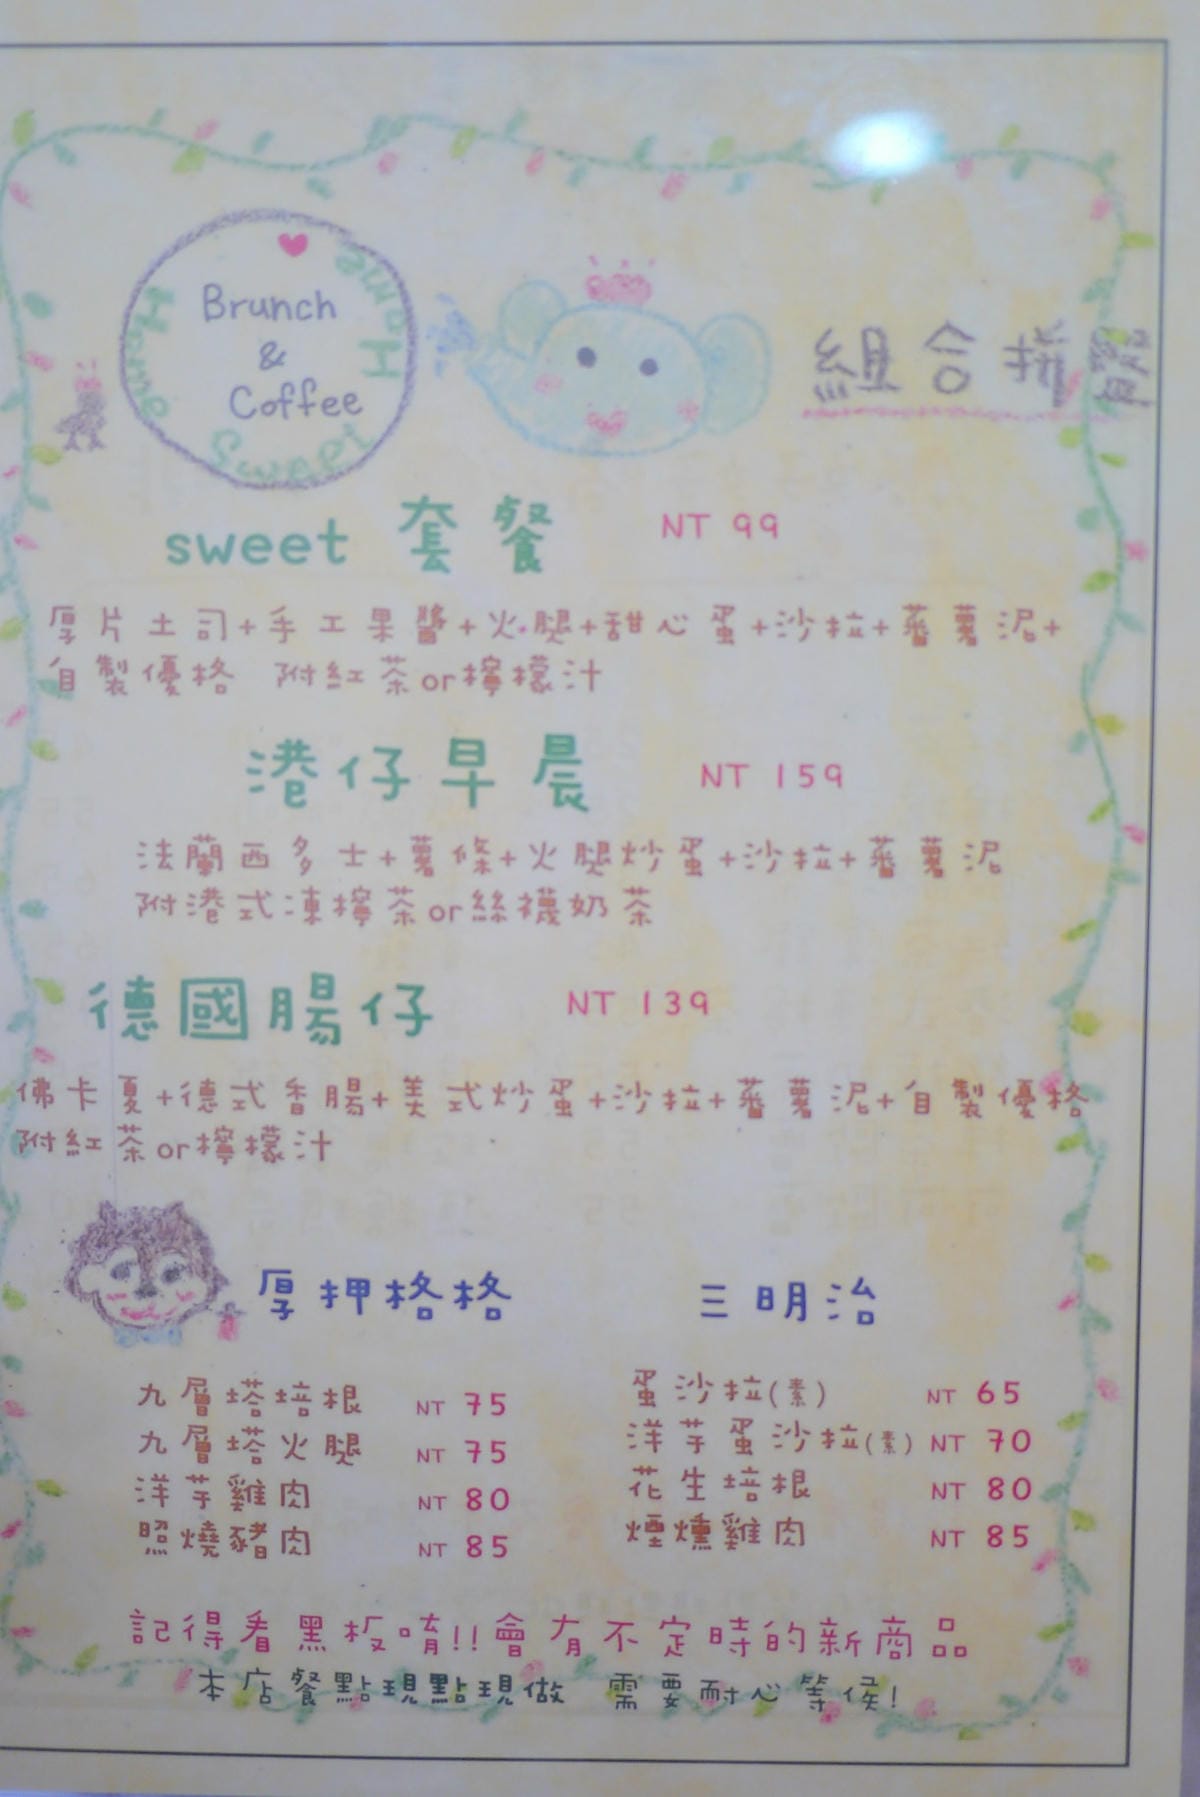 Brunch
&
Coffee
Home
Sweet
Home
組合拼盤
sweet 套餐 NT 99
厚片土司+手工果醬+火腿+甜心蛋+沙拉+蕃薯泥+
自製優格 附紅茶or檸檬汁
港仔早晨 NT 159
法蘭西多士+薯條+火腿炒蛋+沙拉+蕃薯泥
附港式凍檸茶or絲襪奶茶
德國腸仔 NT 139
佛卡夏+德式香腸+美式炒蛋+沙拉+蕃薯泥+自製優格
附紅茶or檸檬汁
厚押格格
九層塔培根 NT 75
九層塔火腿 NT 75
洋芋雞肉 NT 80
照燒豬肉 NT 85
三明治
蛋沙拉(素) NT 65
洋芋蛋沙拉(素) NT 70
花生培根 NT 80
煙燻雞肉 NT 85
記得看黑板唷!!會有不定時的新商品
本店餐點現點現做 需要耐心等候!